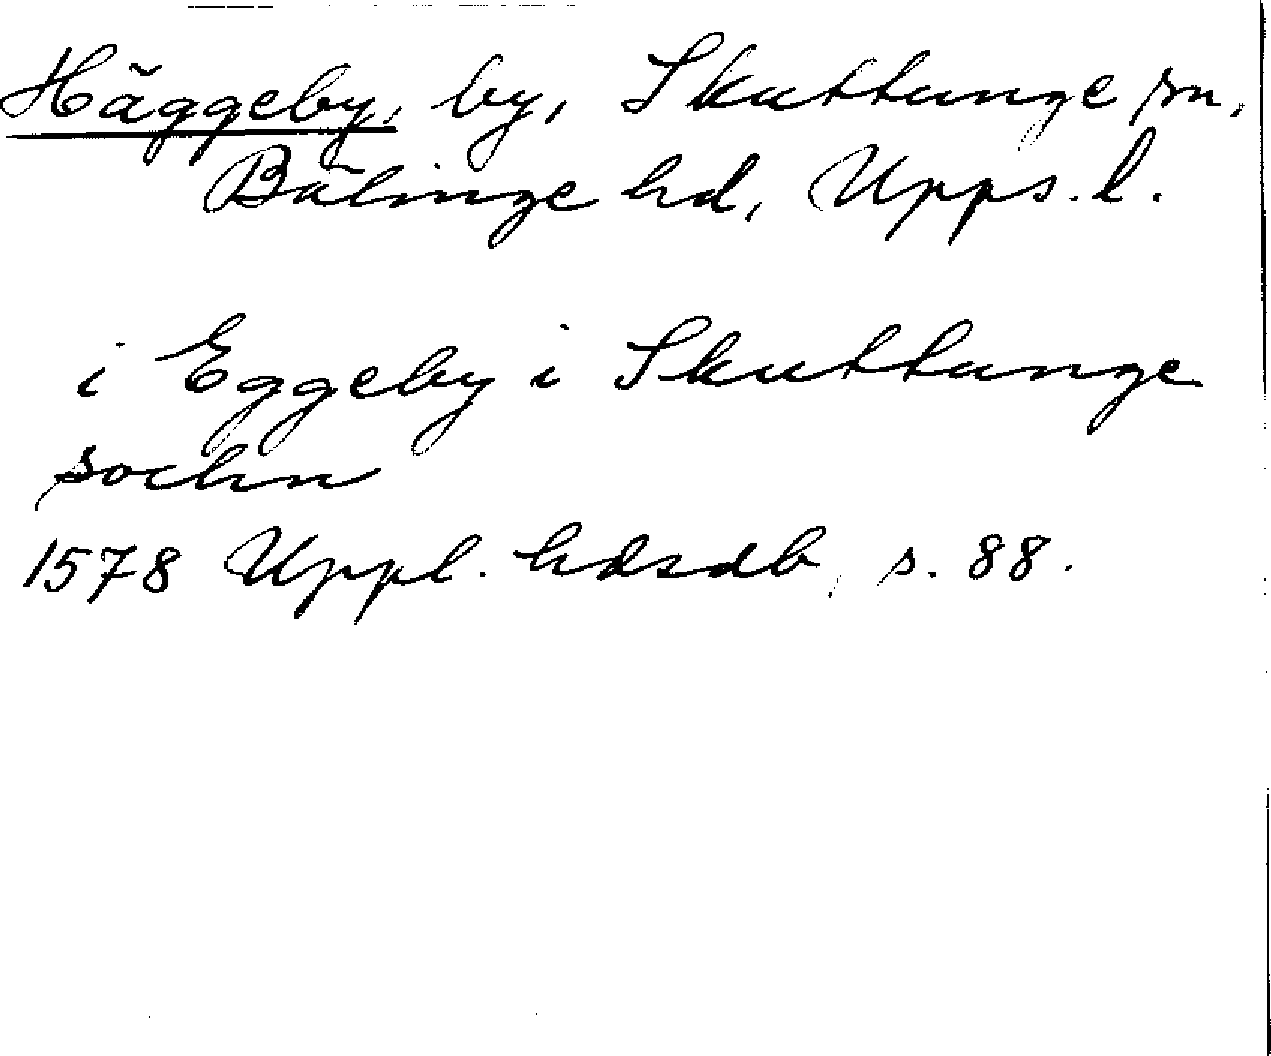 Häggeby, by, Skuttunge sn,
Bälinge hd, Upps. l.
i Eggeby i Skuttunge
sochn
1578 Uppl. hdsdb, s. 88.